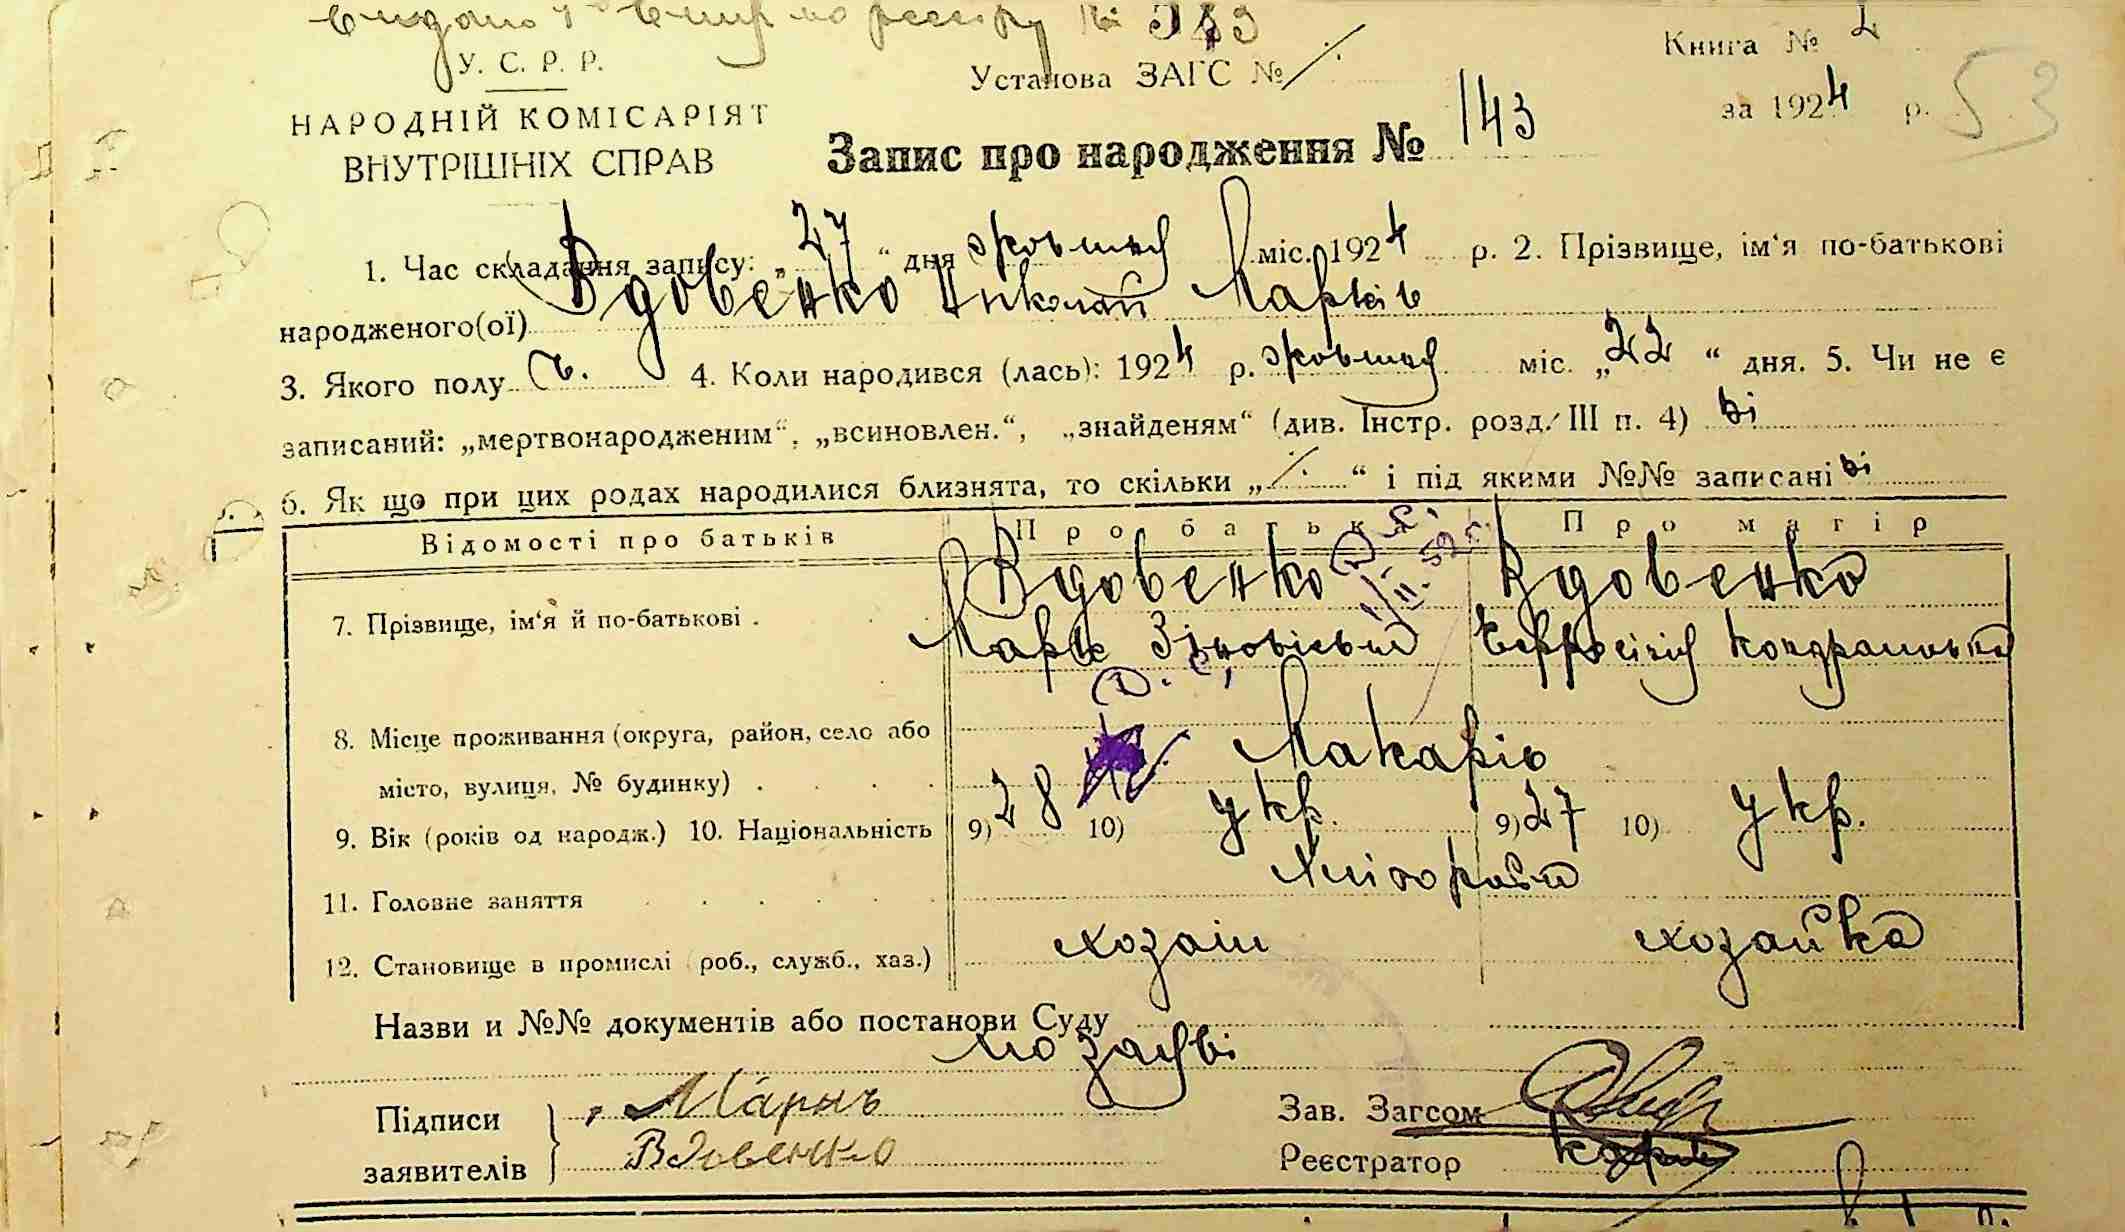 по реєстру № 383
У. С. Р. Р.
НАРОДНІЙ КОМІСАРІЯТ
ВНУТРІШНІХ СПРАВ
Установа ЗАГС №
Книга № 2
за 1924 р. 53
Запис про народження № 143
1. Час складання запису: „27“ дня жовтня міс. 1924 р. 2. Прізвище, ім‘я по-батькові
народженого(ої) Вдовенко Николай Марків
3. Якого полу ч. 4. Коли народився (лась): 1924 р. жовтня міс. „22“ дня. 5. Чи не є
записаний: „мертвонародженим“, „всиновлен.“, „знайденям“ (див. Інстр. розд. III п. 4) ні
6. Як що при цих родах народилися близнята, то скільки „ “ і під якими №№ записані ні
Відомості про батьків Про батька Про матір
7. Прізвище, ім‘я й по-батькові . Вдовенко Вдовенко
Марк Зіновієвич Кондратовна
8. Місце проживання (округа, район, село або
місто, вулиця, № будинку) . Макарів
9. Вік (років од народж.) 10. Національність 9) 28 10) укр. 9) 27 10) укр.
11. Головне заняття Хліборобы
12. Становище в промислі (роб., служб., хаз.) хозаін хозайка
Назви и №№ документів або постанови Суду
по заяві
Підписи Маркъ
заявителів Вдовенко
Зав. Загсом
Реєстратор